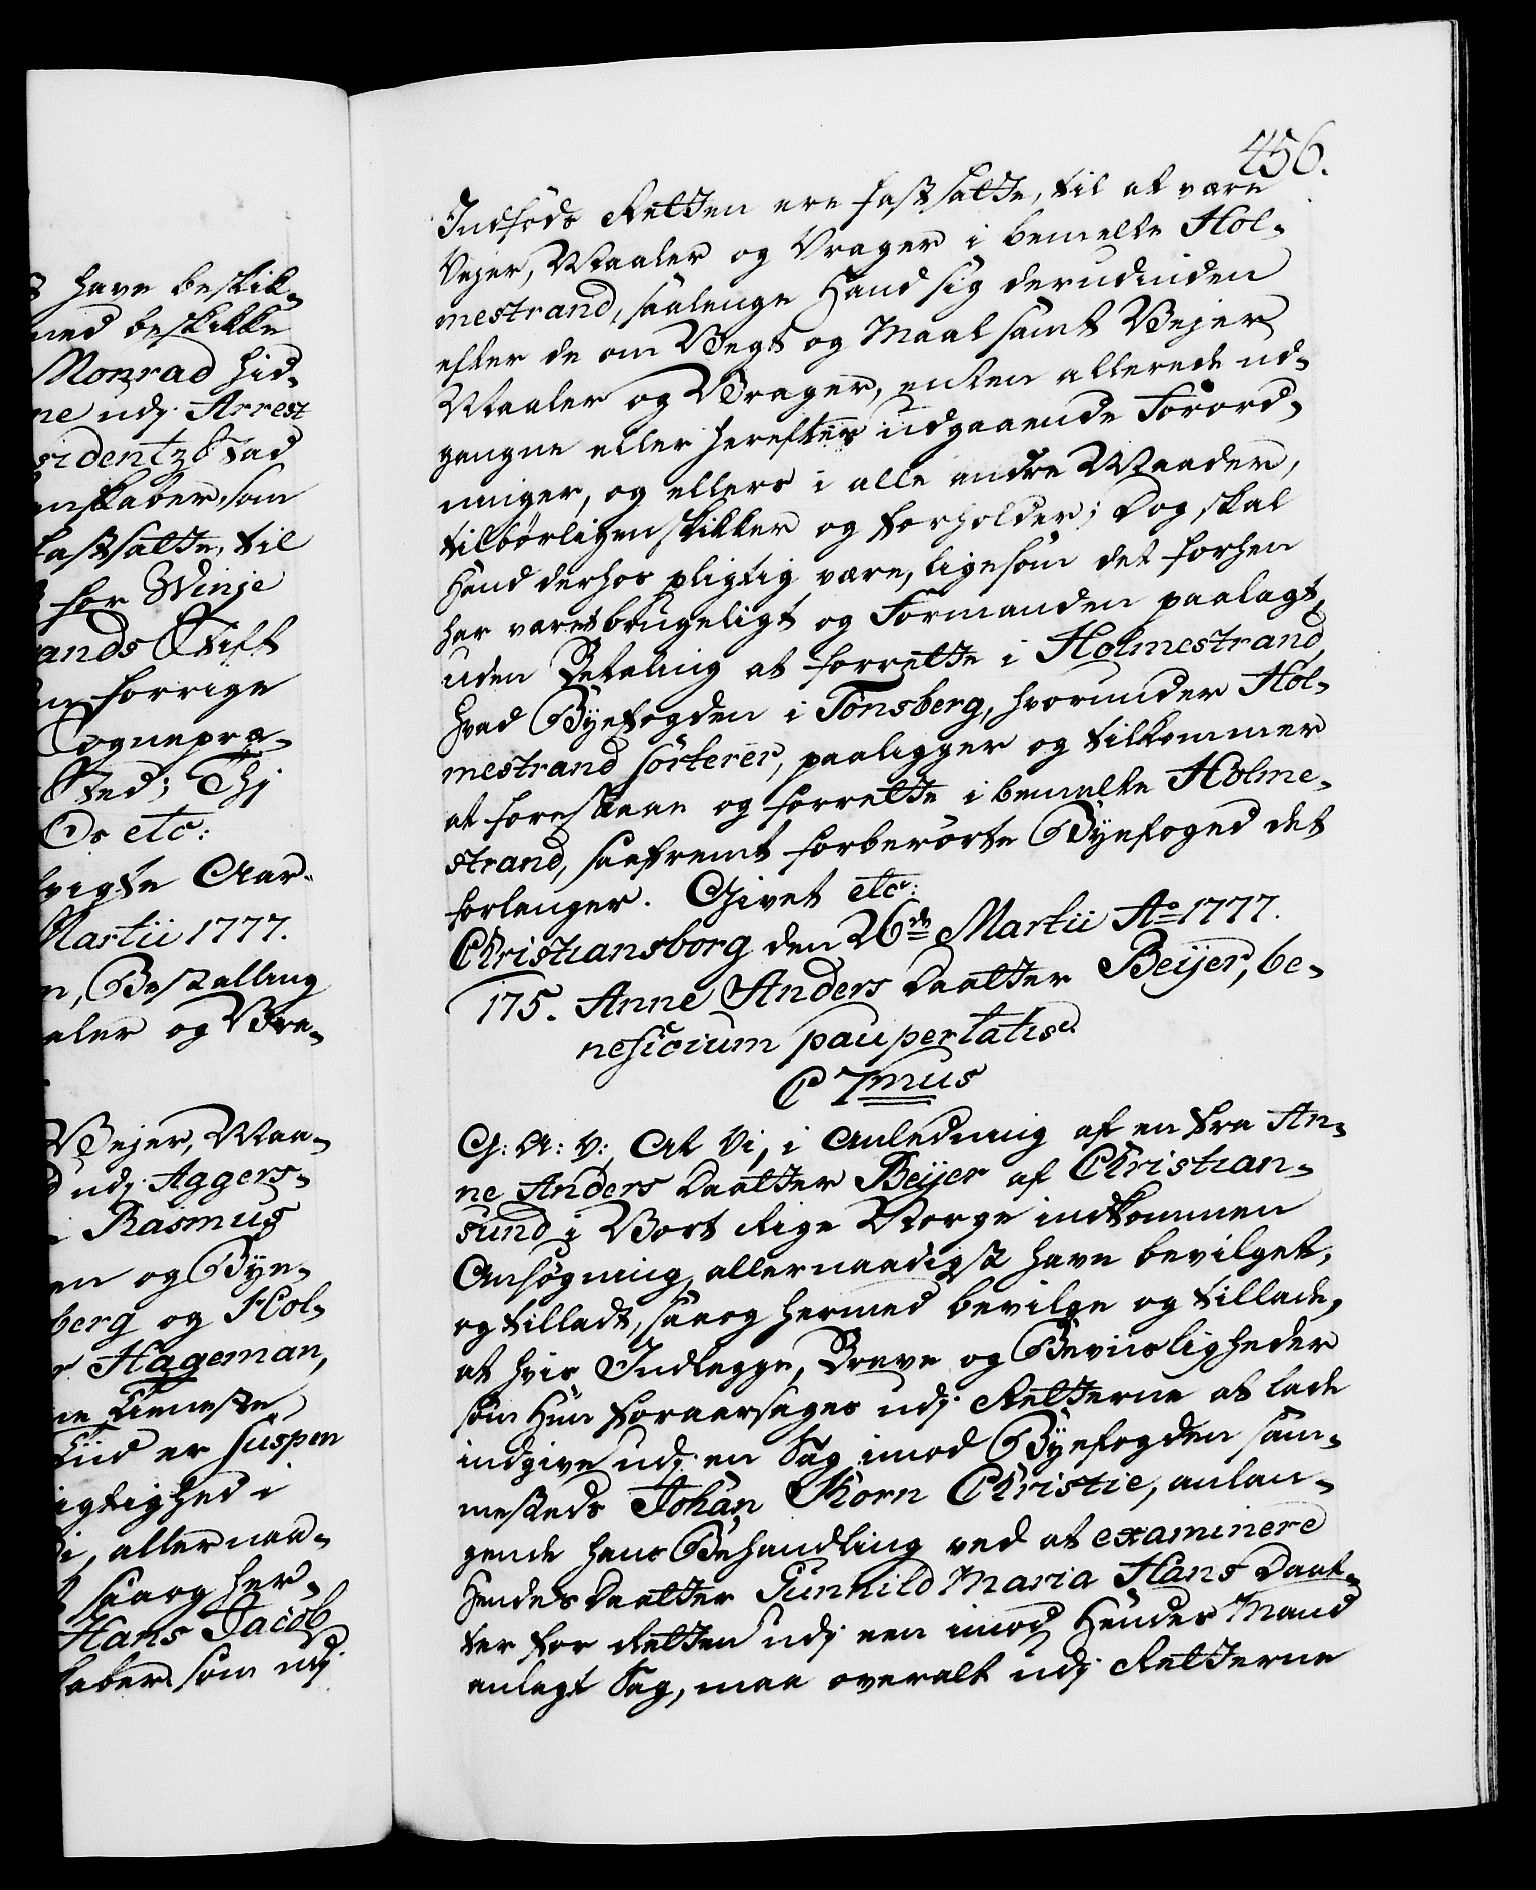 s have beskik-
med beskikke
Monrad hid-
ne udj Arrest
sidentzstad
enskaber, som
fastsatte, til
for Winje
ands Stift
n forrige
Sognepræ-
Sted; Thj
Os etc:
vigte Aar-
Martii 1777.
n, Bestalling
aler og Vra-
Vejer, Maa-
d udj Aggers-
Rasmus
en og Bÿe-
berg og Hol-
r Hageman,
ne Tieneste
Tiid er suspen
igtighed i
i, allernaa-
saaog her-
Hans Jacob
kaber, som udj
456.
Indføds Retten ere fastsatte, til at være
Vejer, Maaler og Vrager i bemelte Hol-
mestrand, saalenge Hand sig derudinden
efter de om Vegt og Maal samt Vejer
Maaler og Vrager, enten allerede ud-
gangne eller herefter udgaaende Forord-
ninger, og ellers i alle andre Maader,
tilbørligen skikker og forholder; Dog skal
Hand derhos pligtig være, ligesom det forhen
har været brugeligt og Formanden paalagt,
uden Betaling at forrette i Holmestrand,
hvad Bÿefogden i Tønsberg, hvorunder Hol-
mestrand sorterer, paaligger og tilkommer
at forestaae og forrette i bemelte Holme-
strand, saafremt forberørte Bÿefoged det
forlanger. Givet etc:
Christiansborg den 26de Martii Ao 1777.
175. Anne Anders Daatter Beijer, be-
neficium paupertatis.
C 7mus
G: A: V: At Vi, i Anledning af en fra An-
ne Anders Daatter Beijer af Christian-
sund i Vort Rige Norge indkommen
Ansøgning, allernaadigst have bevilget,
og tilladt, saaog hermed bevilge og tillade,
at hvis Indlegge, Breve og Beviisligheder
som Hun foraarsages udj Retterne at lade
indgive udj en Sag imod Bÿefogden sam-
mesteds Johan Khorn Christie, anlan-
gende hans Behandling ved at examinere
Hendes Daatter Gunnild Maria Hans Daat-
ter for Retten udj een imod Hendes Mand
anlagt Sag, maa overalt udj Retterne